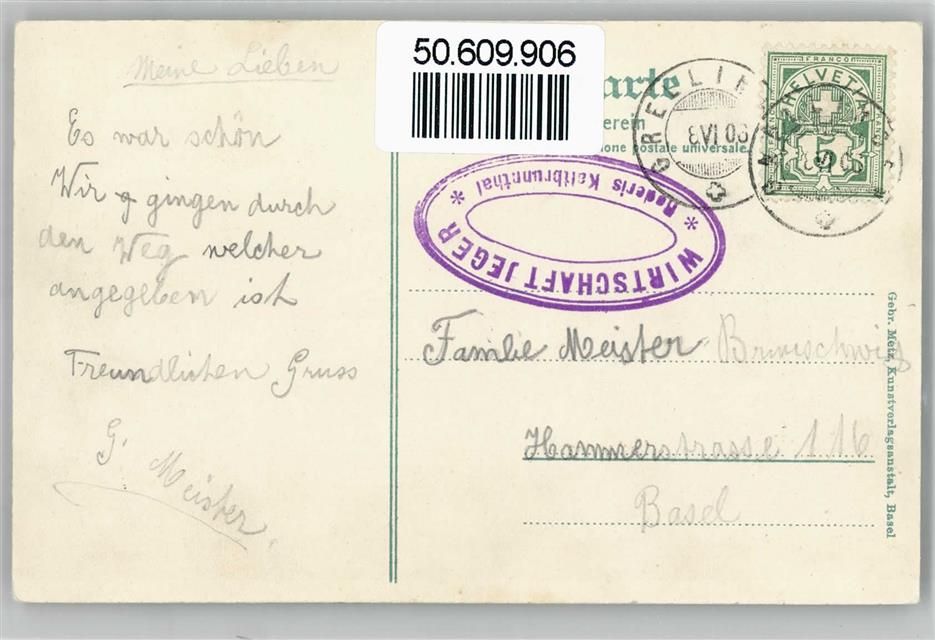 Meine Lieben
Es war schön
Wir gingen durch
den Weg welcher
angegeben ist
Freundlichen Gruss
G. Meister.
50.609.906
arte
erein
ione postale universelle
GRELLIN
8 VI 06
HELVETIA
FRANCO
5
* WIRTSCHAFT JEGER *
Kaltbrunnthal
Familie Meister
Hammerstrasse 116
Basel
Gebr. Metz, Kunstverlagsanstalt, Basel